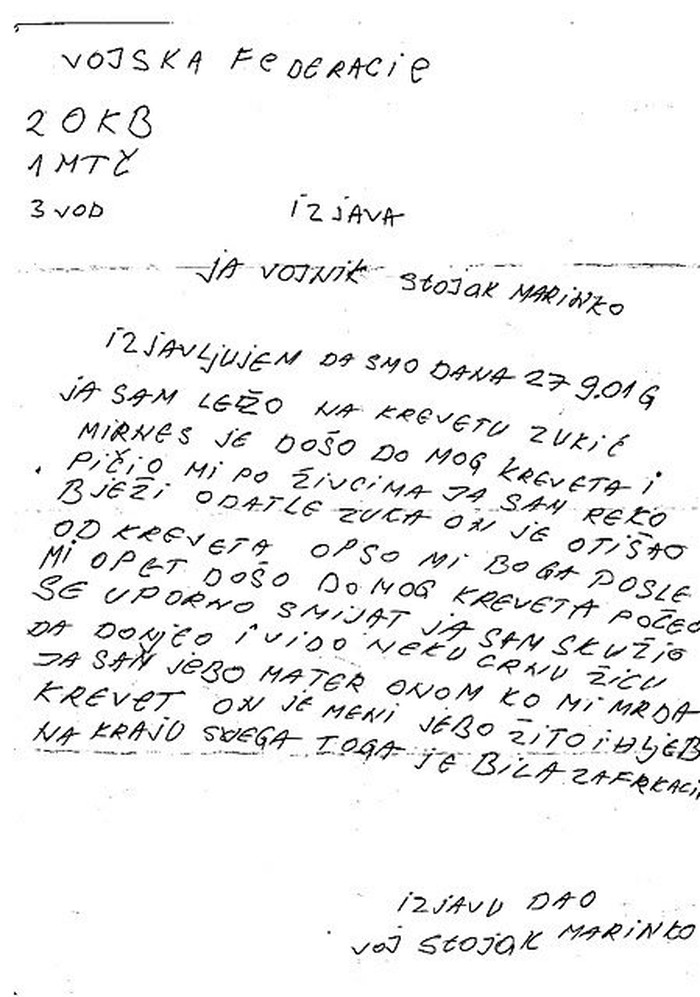 VOJSKA FEDERACIE
2 OKB
1 MTČ
3 VOD
IZJAVA
JA VOJNIK STOJAK MARINKO
IZJAVLJUJEM DA SMO DANA 27 9.01 G
JA SAM LEŽO NA KREVETU ZUKIĆ
MIRNES JE DOŠO DO MOG KREVETA I
PIČIO MI PO ŽIVCIMA JA SAM REKO
BJEŽI ODATLE ZUKA ON JE OTIŠAO
OD KREVETA OPSO MI BOGA POSLE
MI OPET DOŠO DO MOG KREVETA POČEO
SE UPORNO SMIJAT JA SAM SKUŽIO
DA DONJEO I VIDO NEKU CRNU ŽICU
JA SAM JEBO MATER ONOM KO MI MRDA
KREVET ON JE MENI JEBO ŽITO I HLJEB
NA KRAJU SVEGA TOGA JE BILA ZAFRKACI
IZJAVU DAO
VOJ STOJAK MARINKO